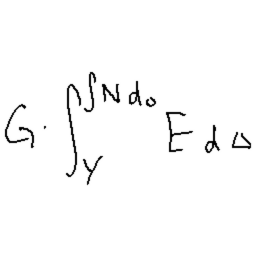 G \cdot \int_{Y}^{\int N d o} E d \Delta